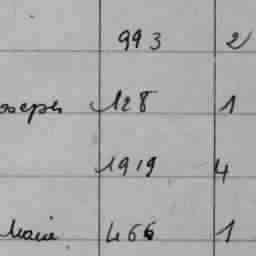 993 2
oseph 128 1
1919 4
Marie 466 1